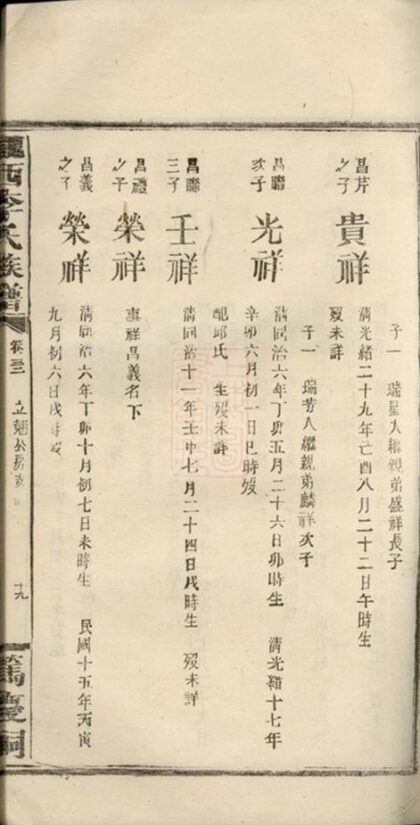 昌芹之子 貴祥 清光緒二十九年亡酉八月二十二日午時生
歿未詳
子一 瑞星人繼親弟盛祥長子
昌聯次子 光祥 清同治六年丁卯五月二十六日卯時生 清光緒十七年
辛卯六月初一日巳時歿
子一 瑞芳人繼親弟麟祥次子
昌聯三子 壬祥 清同治十一年壬申七月二十四日戌時生 歿未詳
配邱氏 生歿未詳
昌禮之子 榮祥 兼祧昌義名下
昌義之子 榮祥 清同治六年丁卯十月初七日未時生 民國十五年丙寅
九月初六日戌時歿
隴西李氏族譜 卷三 立勉公房 十九 篤慶祠